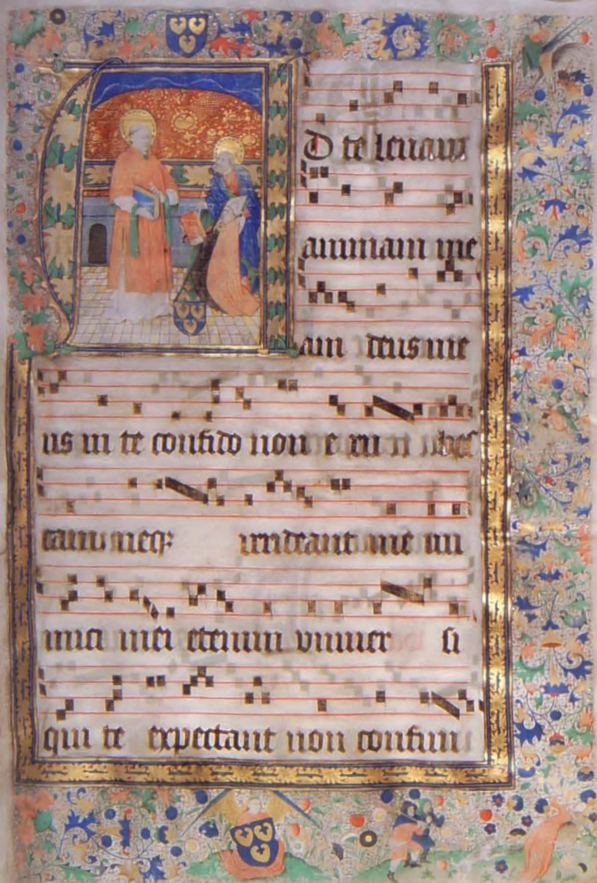 AD te leuaui
animam me
am deus me
us in te confido non e ru n ubes
cam neqꝫ irrideant me ini
mici mei etenim vniuer si
qui te expectant non confun